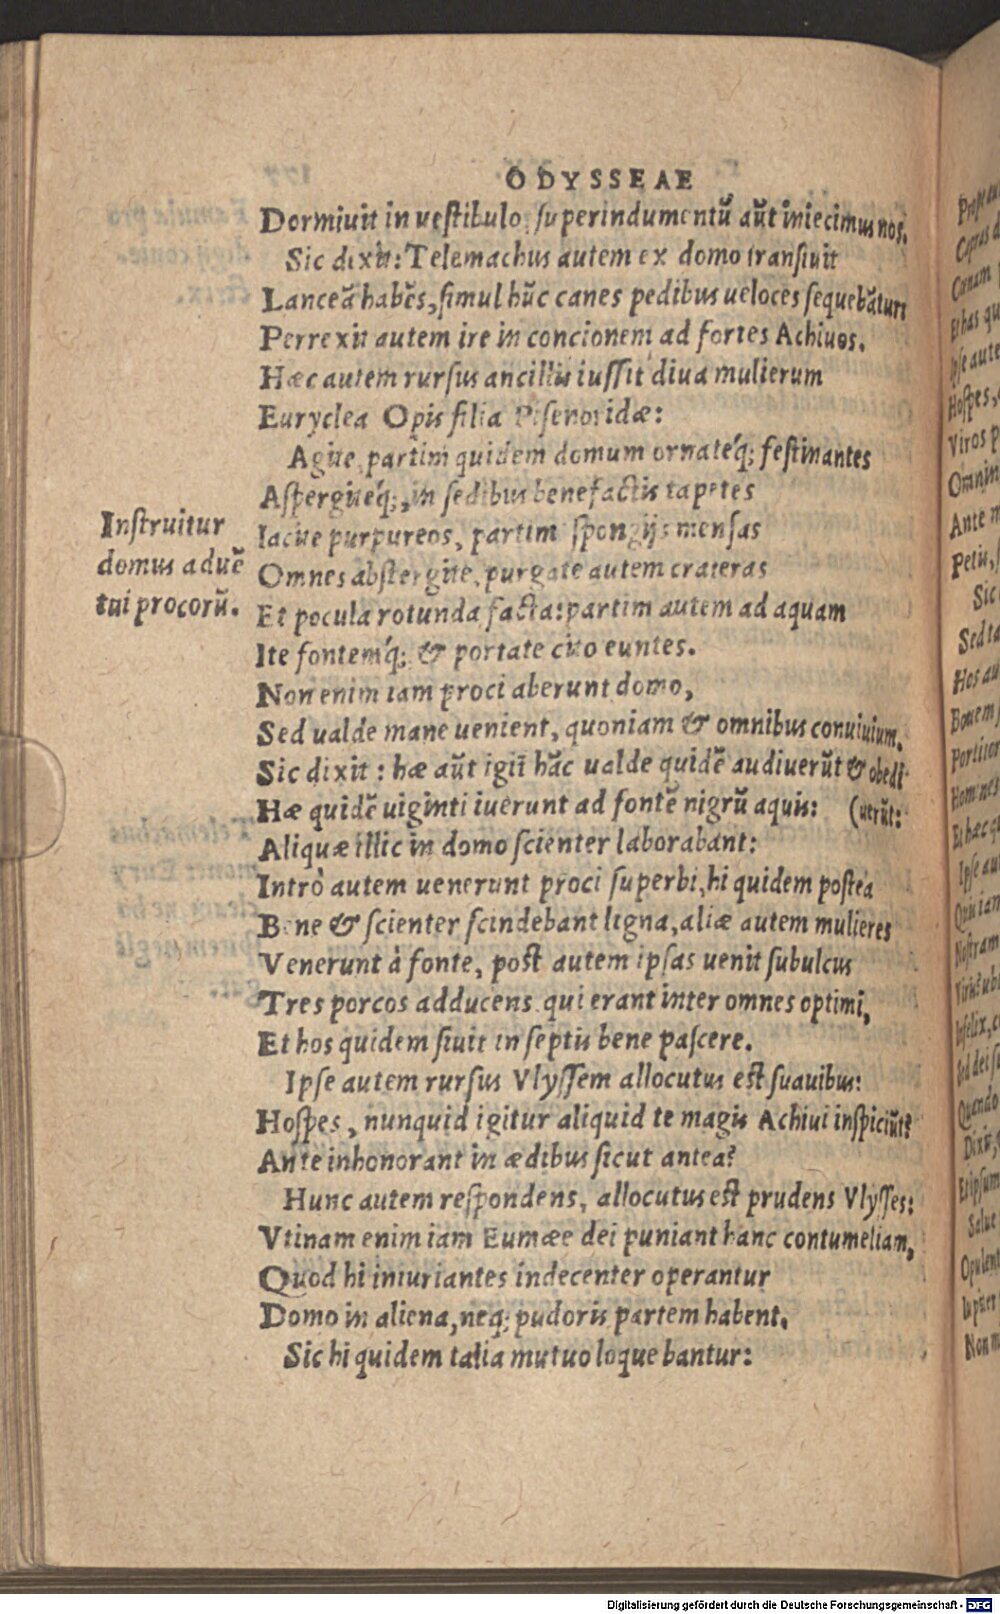 ODYSSEAE
Dormiuit in uestibulo, superindumentū aūt iniecimus nos.
Sic dixit: Telemachus autem ex domo transiuit
Lanceā habēs, simul hūc canes pedibus ueloces sequebātur:
Perrexit autem ire in concionem ad fortes Achiuos.
Hæc autem rursus ancillis iussit diua mulierum
Euryclea Opis filia Pisenoridæ:
Agite partim quidem domum ornateq́; festinantes
Aspergiteq́;, in sedibus benefactis tapetes
Iacite purpureos, partim spongijs mensas
Omnes abstergite, purgate autem crateras
Et pocula rotunda facta: partim autem ad aquam
Ite fontemq́; & portate cito euntes.
Non enim iam proci aberunt domo,
Sed ualde mane uenient, quoniam & omnibus conuiuium.
Sic dixit: hæ aūt igit̄ hāc ualde quidē audiuerūt & obedi
Hæ quidē uiginti iuerunt ad fontē nigrū aquis: (uerūt:
Aliquæ illic in domo scienter laborabant:
Intrò autem uenerunt proci superbi, hi quidem postea
Bene & scienter scindebant ligna, aliæ autem mulieres
Venerunt à fonte, post autem ipsas uenit subulcus
Tres porcos adducens qui erant inter omnes optimi,
Et hos quidem siuit in septis bene pascere.
Ipse autem rursus Vlyssem allocutus est suauibus:
Hospes, nunquid igitur aliquid te magis Achiui inspiciūt?
Ante inhonorant in ædibus sicut antea?
Hunc autem respondens, allocutus est prudens Vlysses:
Vtinam enim iam Eumæe dei puniant hanc contumeliam,
Quod hi iniuriantes indecenter operantur
Domo in aliena, neq; pudoris partem habent.
Sic hi quidem talia mutuo loquebantur:
Instruitur
domus aduē
tui procorū.
Digitalisierung gefördert durch die Deutsche Forschungsgemeinschaft - DFG